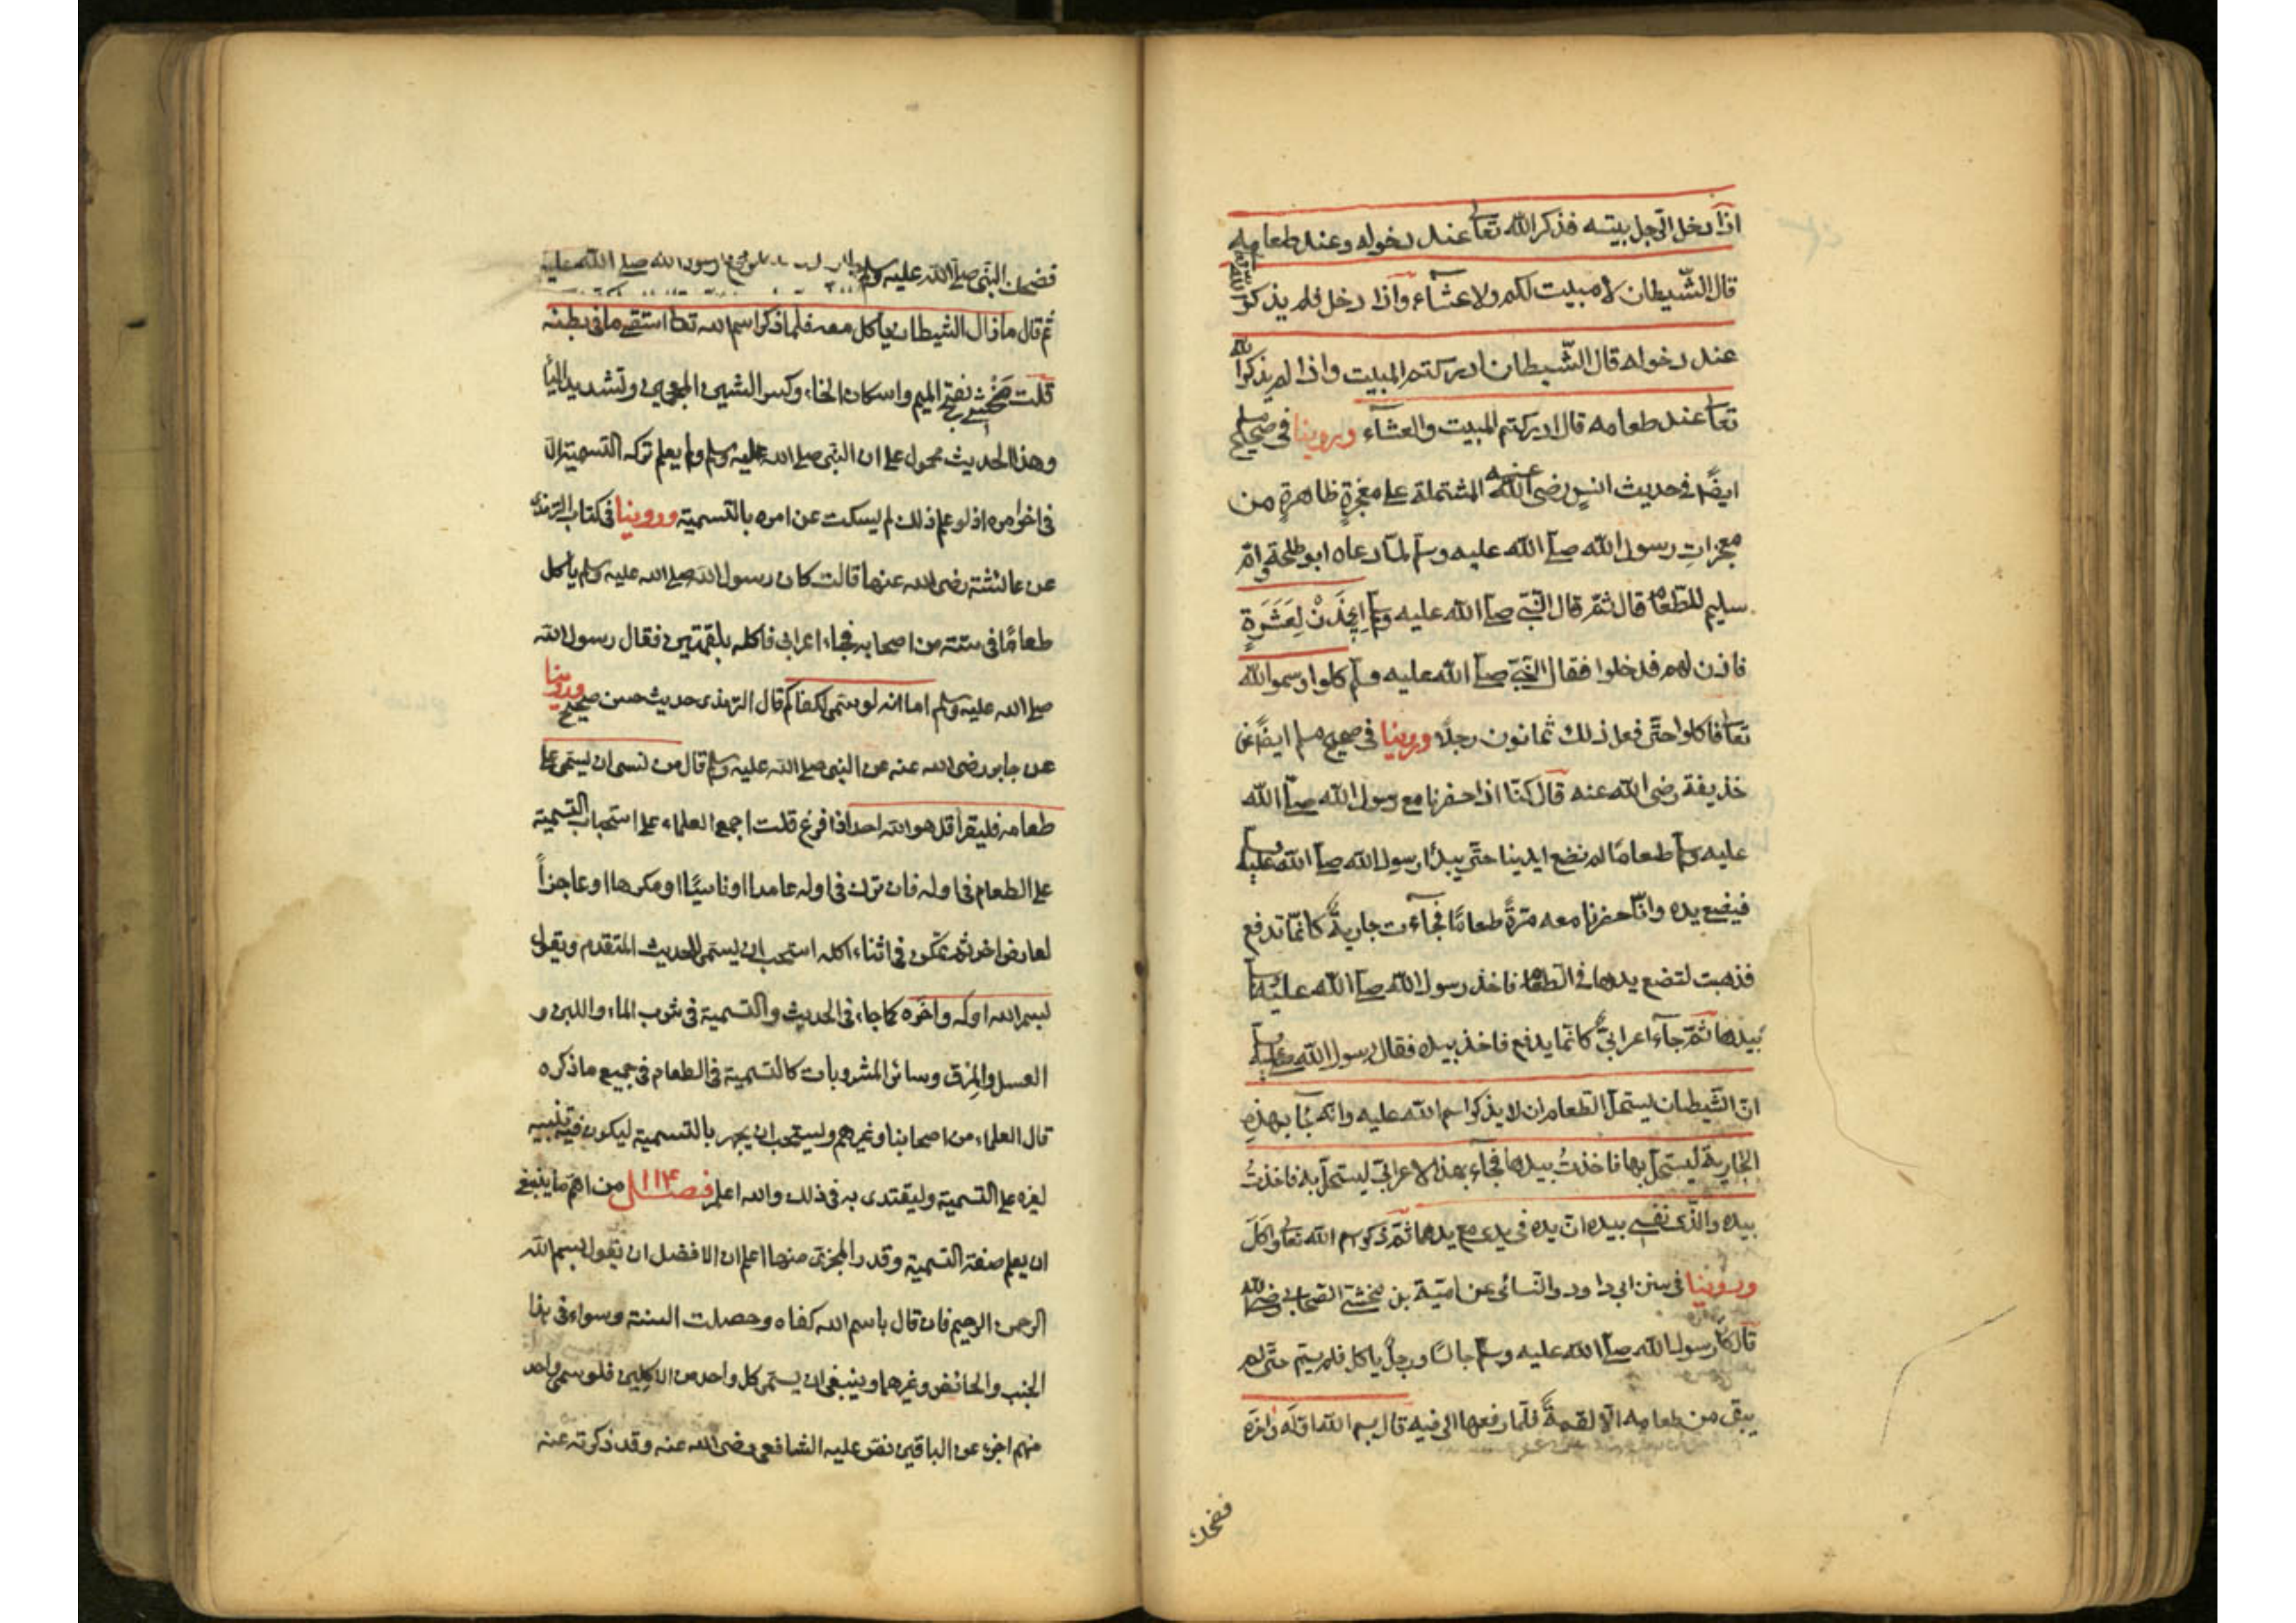 اذا دخل الرجل بيته فذكر الله تعا عند دخوله وعند طعامه
قال الشيطان لا مبيت لكم ولا عشآء واذا دخل فلم يذكر الله تعا
عند دخوله قال الشيطان ادركتم المبيت واذا لم يذكر الله
تعا عند طعامه قال ادركتم المبيت والعشآء وروينا في صحيح مسلم
ايضًا في حديث انس رضى الله عنه المشتملة على معجزةٍ ظاهرةٍ من
معجزات رسول الله صلى الله عليه وسلم لمّا دعاه ابو طلحة وامّ
سليم للطعام قال ثمّ قال النّبي صلى الله عليه وسلم إيذَنْ لِعَشَرَةٍ
فاذن لهم فدخلوا فقال النبيّ صلى الله عليه وسلم كلوا وسموا الله
تعا فاكلوا حتّى فعل ذلك ثمانون رجلًا وروينا في صحيح مسلم ايضًا عن
حذيفة رضى الله عنه قال كنّا اذا حضرنا مع رسول الله صلى الله
عليه وسلم طعامًا لم نضع ايدينا حتّى يبدأ رسول الله صلى الله عليه وسلم
فيضع يده وانّا حضرنا معه مرّةً طعامًا فجآءت جاريةٌ كانّما تدفع
فذهبت لتضع يدها في الطعام فاخذ رسول الله صلى الله عليه وسلم
بيدها ثمّ جآء اعرابيّ كانّما يدفع فاخذ بيده فقال رسول الله صلى الله عليه وسلم
انّ الشّيطان يستحلّ الطعام ان لا يذكر اسم الله عليه وانّه جآء بهذه
الجارية ليستحلّ بها فاخذتُ بيدها فجآء بهذا الاعرابيّ ليستحلّ به فاخذتُ
بيده والّذى نفسى بيده انّ يده في يدى مع يدها ثمّ ذكر اسم الله تعا واكَلَ
وروينا في سنن ابي داود والنّسائى عن اميّة بن مخشى الصّحابى رضى الله
قال كان رسول الله صلى الله عليه وسلم جالسًا ورجلٌ ياكل فلم يسم حتّى لم
يبق من طعامه الّا لقمةٌ فلمّا رفعها الى فيه قال بسم الله اوّله وآخره
فضحك
فضحك النبي صلى الله عليه وسلم
ثم قال ما زال الشيطان ياكل معه فلما ذكر اسم الله تعا استقى ما فى بطنه
قلت مَخْشِى بفتح الميم واسكان الخاء وكسر الشين المعجمين وتشديد اليا
وهذا الحديث محمول على ان النبي صلى الله عليه وسلم ولم يعلم تركه التسمية الا
فى اخر امره اذ لو علم ذلك لم يسكت عن امره بالتسمية وروينا فى كتاب الترمذى
عن عائشة رضى الله عنها قالت كان رسول الله صلى الله عليه وسلم ياكل
طعامًا فى ستة من اصحابه فجاء اعرابى فاكله بلقمتين فقال رسول الله
صلى الله عليه وسلم اما انه لو سمى لكفاكم قال الترمذى حديث حسن صحيح وروينا
عن جابر رضى الله عنه عن النبى صلى الله عليه وسلم قال من نسى ان يسمى على
طعامه فليقرأ قل هو الله احد اذا فرغ قلت اجمع العلماء على استحباب التسمية
على الطعام فى اوله فان ترك فى اوله عامدا او ناسيًا او مكرها او عاجزاً
لعارض اخر ثم تمكن فى اثناء اكله استحب ان يسمى للحديث المتقدم ويقول
بسم الله اوله واخره كما جاء فى الحديث والتسمية فى شرب الماء واللبن و
العسل والمرق وسائر المشروبات كالتسمية فى الطعام فى جميع ما ذكره
قال العلماء من اصحابنا وغيرهم ويستحب ان يجهر بالتسمية ليكون فيه تنبيه
لغيره على التسمية وليقتدى به فى ذلك والله اعلم فصل ١١٤ من اهم ما ينبغى
ان يعلم صفة التسمية وقدر المجزئ منها اعلم ان الافضل ان يقول بسم الله
الرحمن الرحيم فان قال باسم الله كفاه وحصلت السنة وسواء فى هذا
الجنب والحائض وغيرهما وينبغى ان يسمى كل واحد من الاكلين فلو سمى واحد
منهم اجزء عن الباقين نص عليه الشافعى رضى الله عنه وقد ذكرته عنه